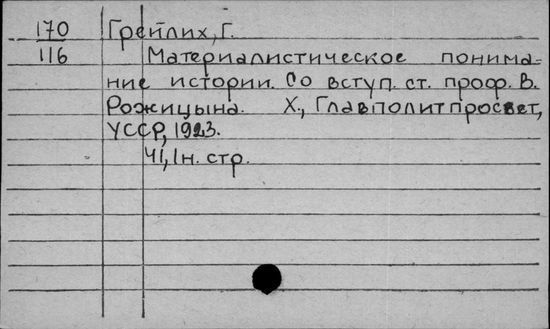 170 Грейлих, Г.
116 Материалистическое понима-
ние истории. Со вступ. ст. проф. В.
Рожицына. Х., Главполитпросвет,
УССР, 1923.
41, 1 н. стр.